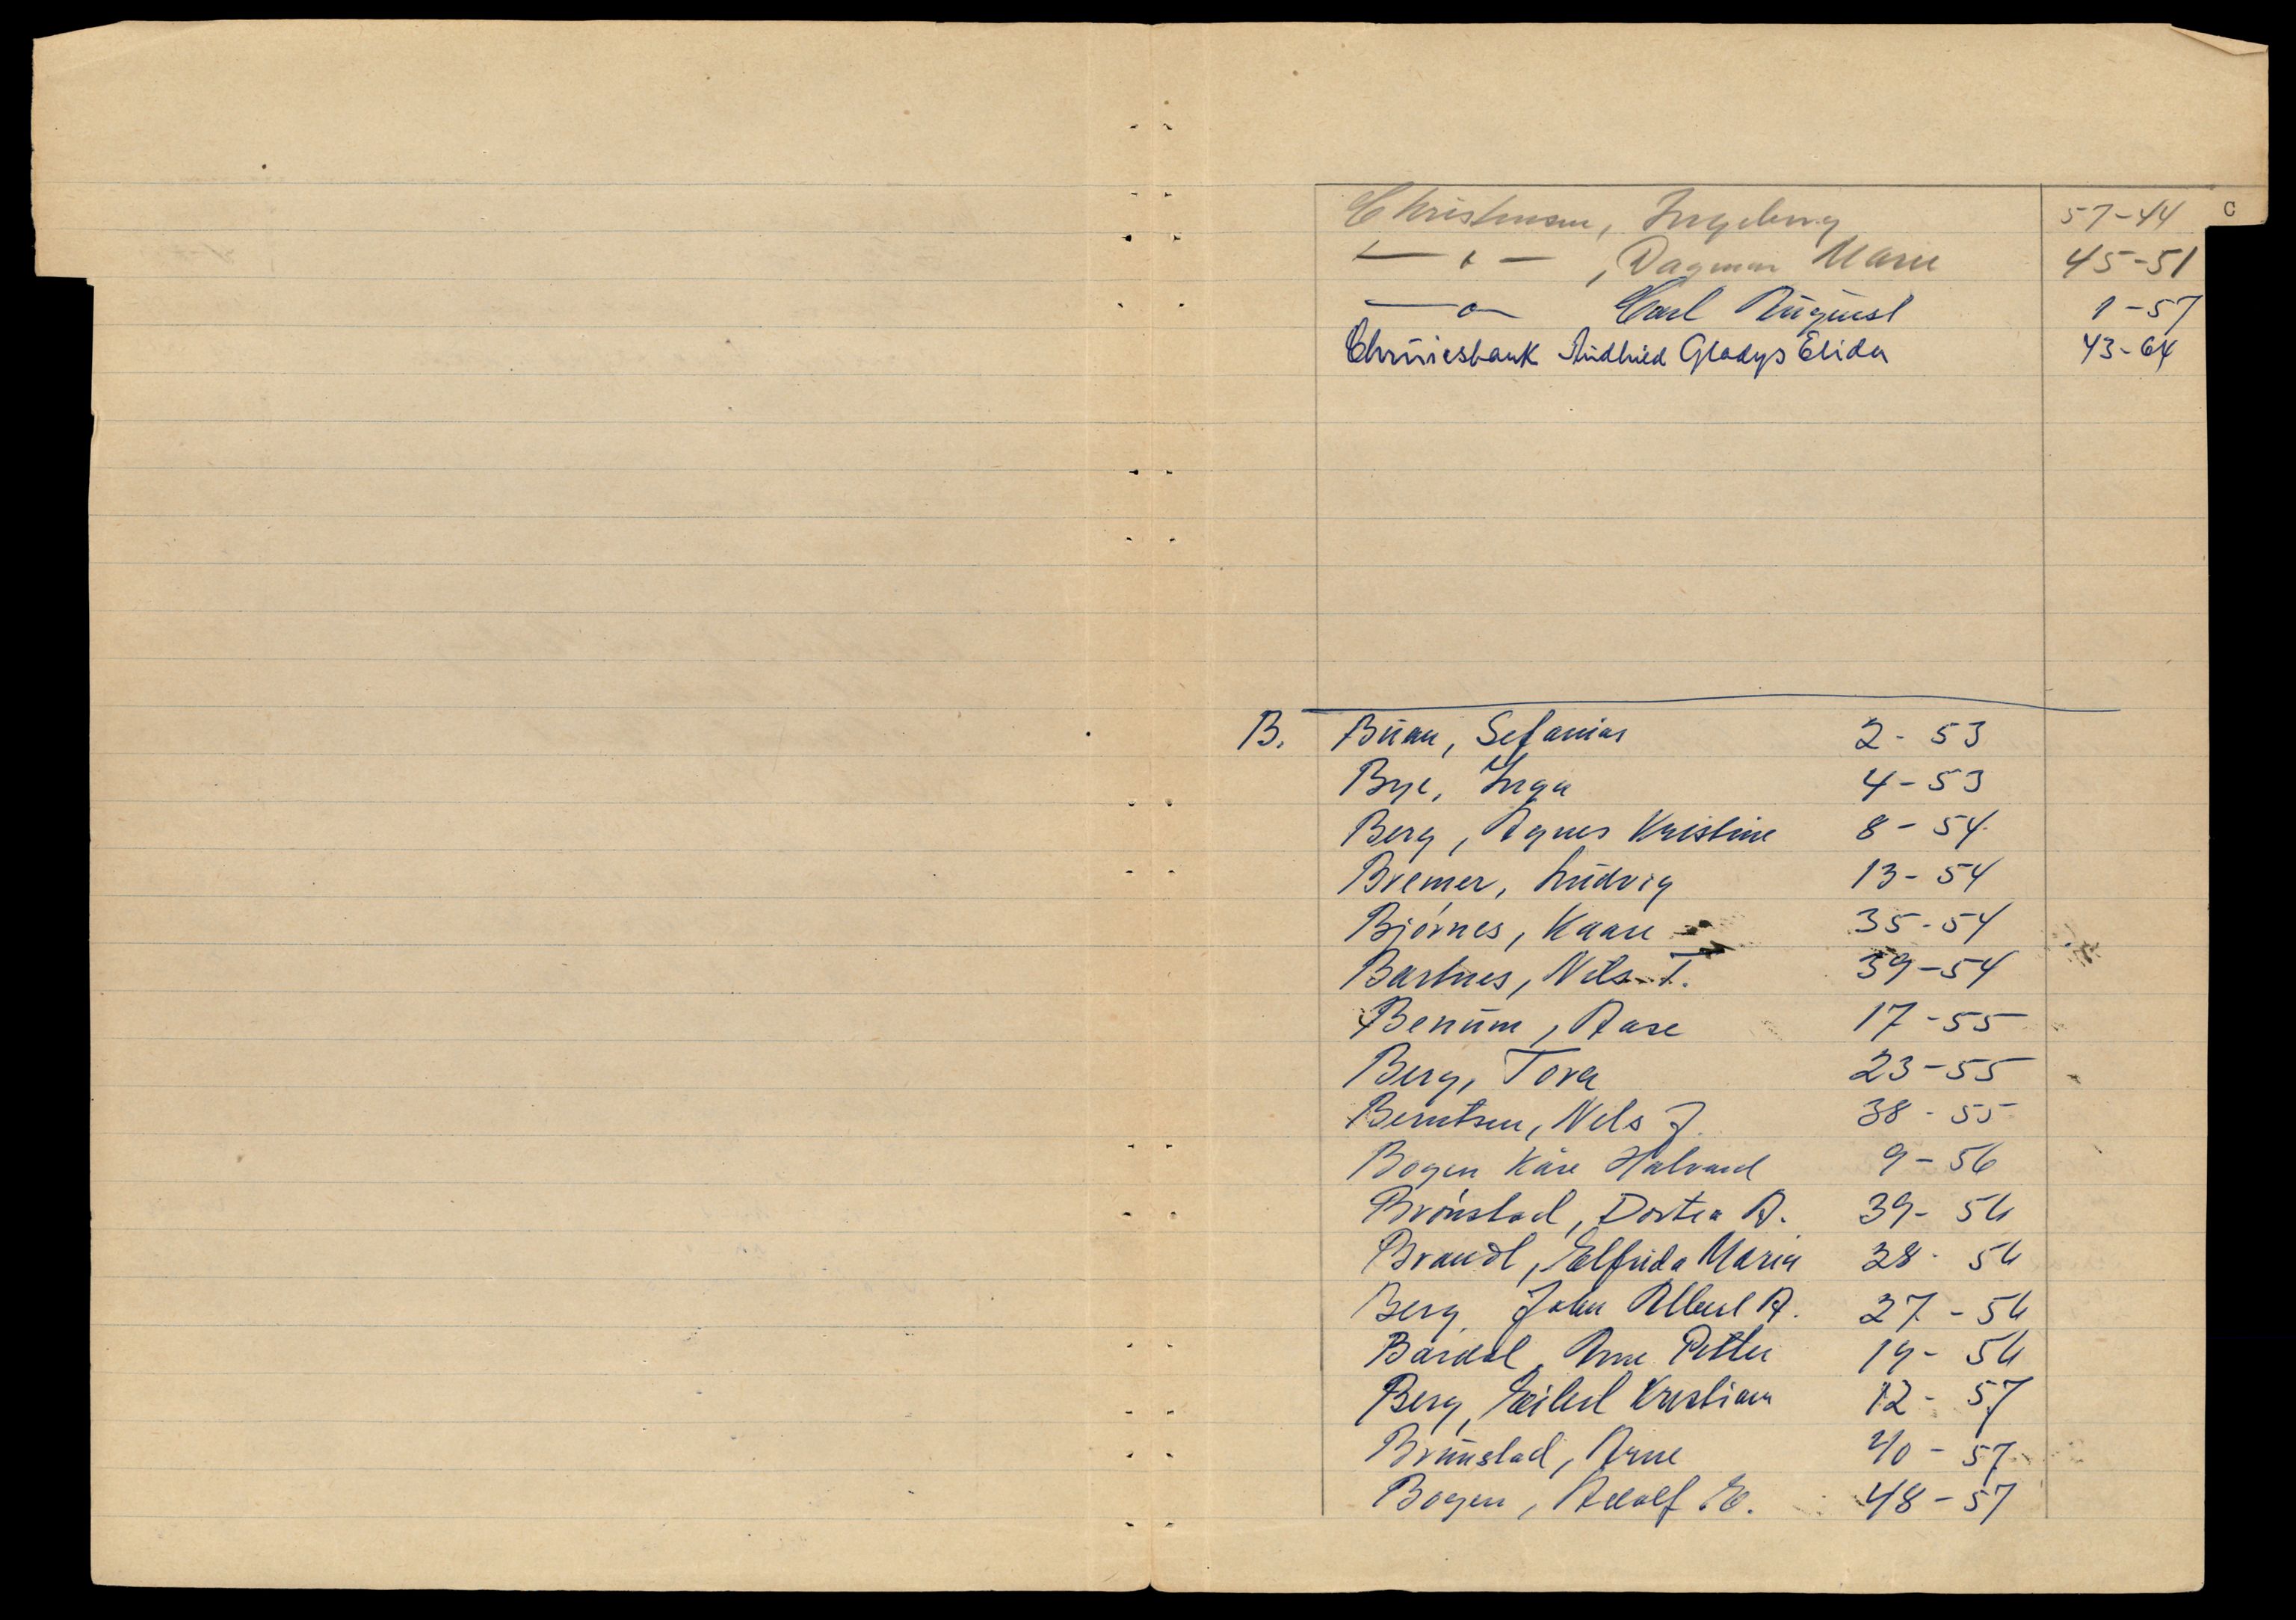 C
Christensen, Ingeborg 57-44
— " — , Dagmar Marie 45-51
— " — Carl August 1-57
Gladys Elida 43-64
B. Buan, Sefanias 2 - 53
Bye, Inga 4 - 53
Berg, Agnes Kristine 8 - 54
Bremer, Ludvig 13 - 54
Bjørnes, Kaare 35 - 54
Bartnes, Nils T. 39 - 54
Benum, Aase 17 - 55
Berg, Tora 23 - 55
Berntsen, Nels J. 38 - 55
Bogen Kåre Halvard 9 - 56
Brønstad, Dortea A. 39 - 56
Brandl, Elfrida Maria 38 - 56
Berg, John Albert A. 27 - 56
Bardal, Arne Petter 19 - 56
Berg, Eilert Kristian 12 - 57
Brunstad, Arne 40 - 57
Bogen, Adolf E. 48 - 57